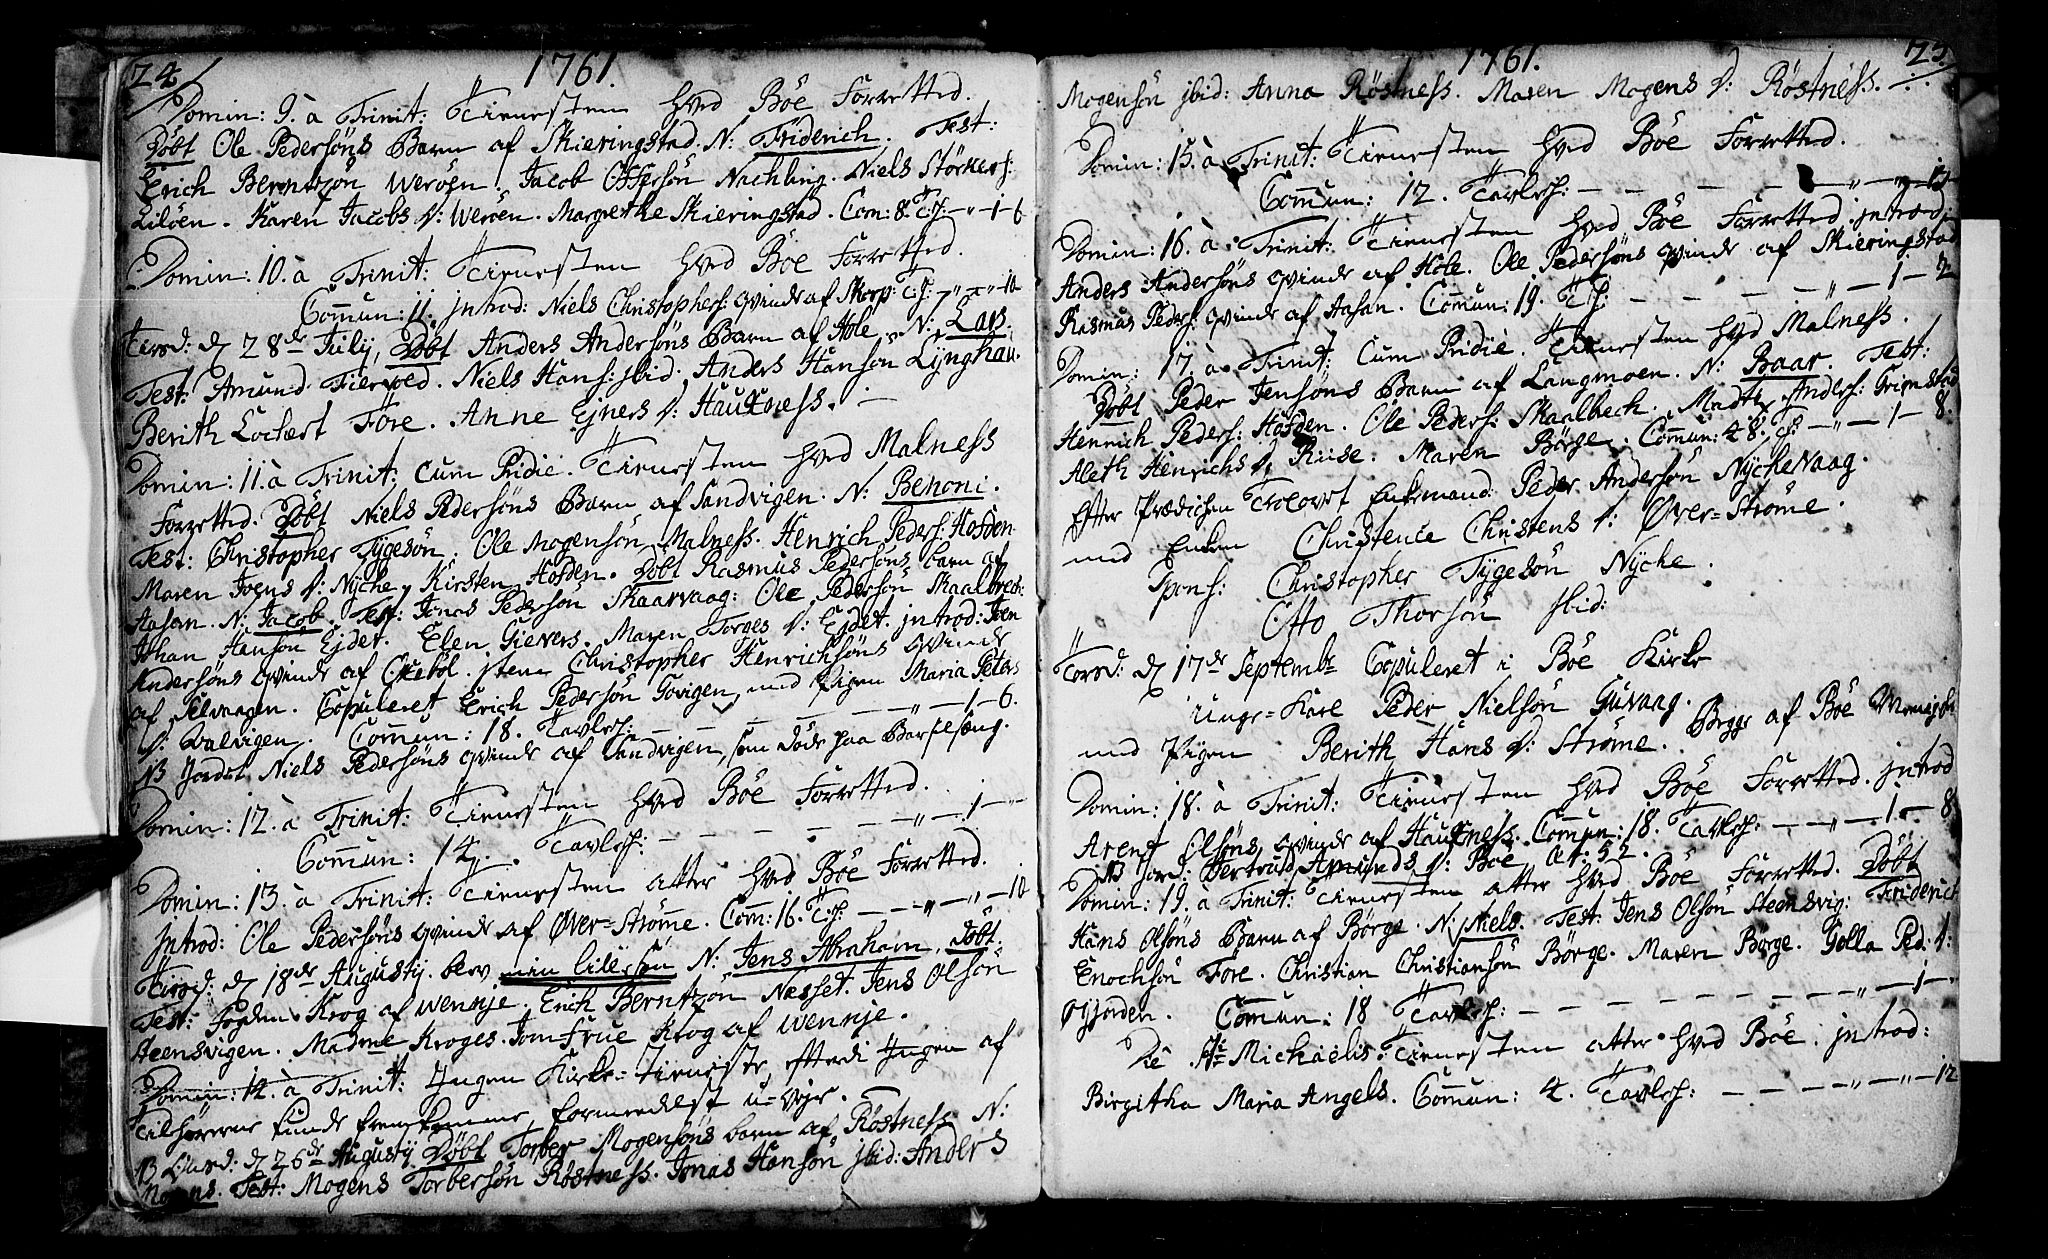 24
1761.
Domin: 9. à Trinit: Tienesten hved Böe Forretted.
Döbt Ole Pedersöns Barn af Skieringstad. N: Friderich. Test:
Erich Berntzön Weröen. Jacob Offersön Nachling. Niels Störkers:
Lilöen. Karen Jacobs D: Weröen. Margrethe Skieringstad. Com: 8. T:f: — " — 1 — 6
Domin: 10. à Trinit: Tienesten hved Böe Forretted.
Com̄un: 11. jntrod: Niels Christophers: qvinde af Skorp: T:f: — " — " — 10
Tirsd: d 28de July, Döbt Anders Andersöns Barn af Hole. N: Lars.
Test: Amund Fierved. Niels Hans: jbid. Anders Hansön Lynghau.
Berith Lochert Före. Anne Ejners D: Hauxness. —
Domin: 11. à Trinit: Cum Pridie. Tienesten hved Malness
Forretted. Döbt Niels Pedersöns Barn af Sandvigen. N: Benoni.
Test: Christopher Tygesön. Ole Mogensön Malness. Henrich Peders: Hofden
Maren Joens D: Nyche. Kirsten Hofden. Döbt Rasmus Pedersöns barn af
Aasan. N: Jacob. Test: Jonas Pedersön Skaarvaag. Ole Pedersön Skaalbrech:
Johan Hansön Ejdet. Elen Gievers. Maren Torges D: Ejdet. jntrod: Joen
Andersöns qvinde af . jtem Christopher Henrichsöns qvinde
af Selvaagen. Copuleret Erich Pedersön Govigen, med Pigen Maria Peters
D: Dalvigen. Com̄un: 18. Tavlef: — — — — " — 1 — 6.
NB Jordet Niels Pedersöns qvinde af Sandvigen, som döde paa Barselseng.
Domin: 12. à Trinit: Tienesten hved Böe Forretted.
Com̄un: 14. Tavlef: — — — — — " — 1 — "
Domin: 13. à Trinit: Tienesten atter hved Böe Forretted.
jntrod: Ole Pedersöns qvinde af Øver-Ströme. Com̄: 16. T:f: — — " — " — 10
Tirsd: d 18de Augustij. blev min lille sön N: Jens Abraham, Döbt.
Test: Fogden Krog af Wennje. Erich Berntzön Nesset. Jens Olsön
Steensvigen. Madme Kroges. Jomfrue Krog af Wennje.
Domin: 14. à Trinit: Jngen Kirke-tieneste, efterdi Jngen af
Tilhörerne kunde fremkomme formedelst u-vejr. —
NB Onsd: d 26de Augustij Döbt Torber Mogensöns barn af Röstness N:
Mogens. Test: Mogens Torbersön Röstness. Jonas Hansön jbid: Anders
25
1761.
Mogensön jbid: Anna Röstness. Maren Mogens D: Röstness.
Domin: 15. à Trinit: Tienesten hved Böe Forretted.
Com̄un: 12. Tavlef: — — — — — " — " —
Domin: 16. à Trinit: Tienesten hved Böe Forretted. jntrod:
Anders Andersöns qvinde af Hole. Ole Pedersöns qvinde af Skieringstad
Rasmus Peders: qvinde af Aasan. Com̄un: 19. T:f: — — — — " — 1 — 2
Domin: 17. à Trinit: Cum Pridie. Tienesten hved Malness.
Döbt Peder Jensöns Barn af Langmoen. N: Baar. Test:
Henrich Peders: Hofden. Ole Peders: Skaalbrech. Madth Anders: Grimstad
Aleth Henrichs D: Riise. Maren Börge. Com̄un: 48. T:f: — " — 1 — 8.
Efter Prædichen Trolovet Enkemand Peder Andersön Nychevaag.
med Enken Christence Christens D: Øver-Ströme.
Spons: Christopher Tygesön Nyche.
Otto Thorsön jbid:
Torsd: d 17de Septembr Copuleret i Böe Kirke
Unge-Karl Peder Nielsön Guvaag.
med Pigen Berith Hans D: Ströme. Begge af Böe Menigh:
Domin: 18. à Trinit: Tienesten hved Böe Forretted. jntrod
Arent Olsöns qvinde af Hauxness. Com̄un: 18. Tavlef: — — " — 1 — 8
NB Jord: Giertrud Amunds D: Böe, Æt. 52.
Domin: 19. à Trinit: Tienesten atter hved Böe Forretted. Döbt
Hans Olsöns Barn af Börge. N: Niels. Test: Jens Olsön Steensvig: Friderich
Enochsön Före. Christian Christiansön Börge. Maren Börge. Golla Ped: D:
Øyjorden. Com̄un: 18 Tavlef: — — — — — — — " — 1 — "
Die Sti Michaelis. Tienesten atter hved Böe. jntrod:
Birgitha Maria Angels. Com̄un: 4. Tavlef: — — — — " — " — 12